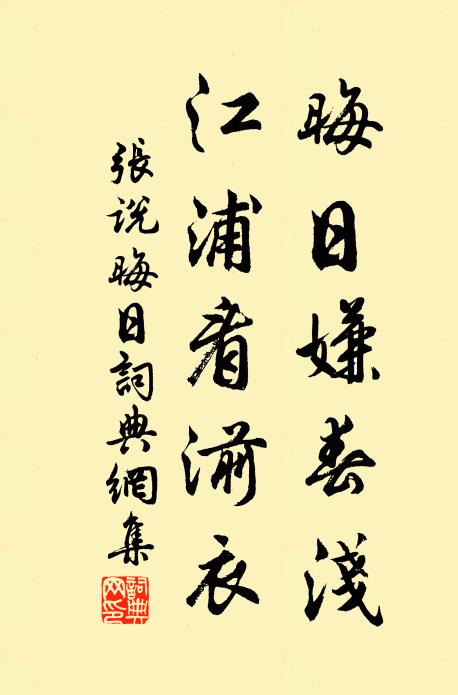 晦日嫌春淺
江浦看湔衣
張說晦日詞典網集
詞典网印